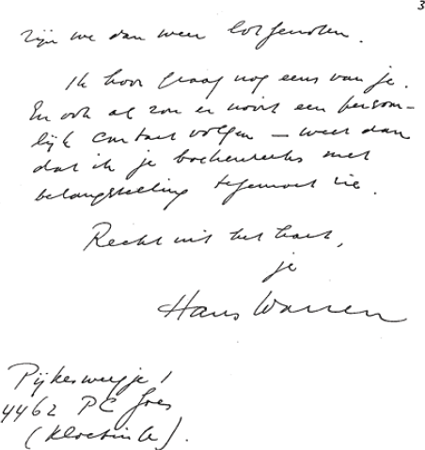 3
zijn we dan weer lotgenoten.
Ik hoor graag nog eens van je.
En ook al zou er nooit een persoon-
lijk contact volgen – weet dan
dat ik je boekenreeks met
belangstelling tegemoet zie.
Recht uit het hart,
je
Hans Warren
Pijkeswegje 1
4462 PC Goes
(Kloetinge).